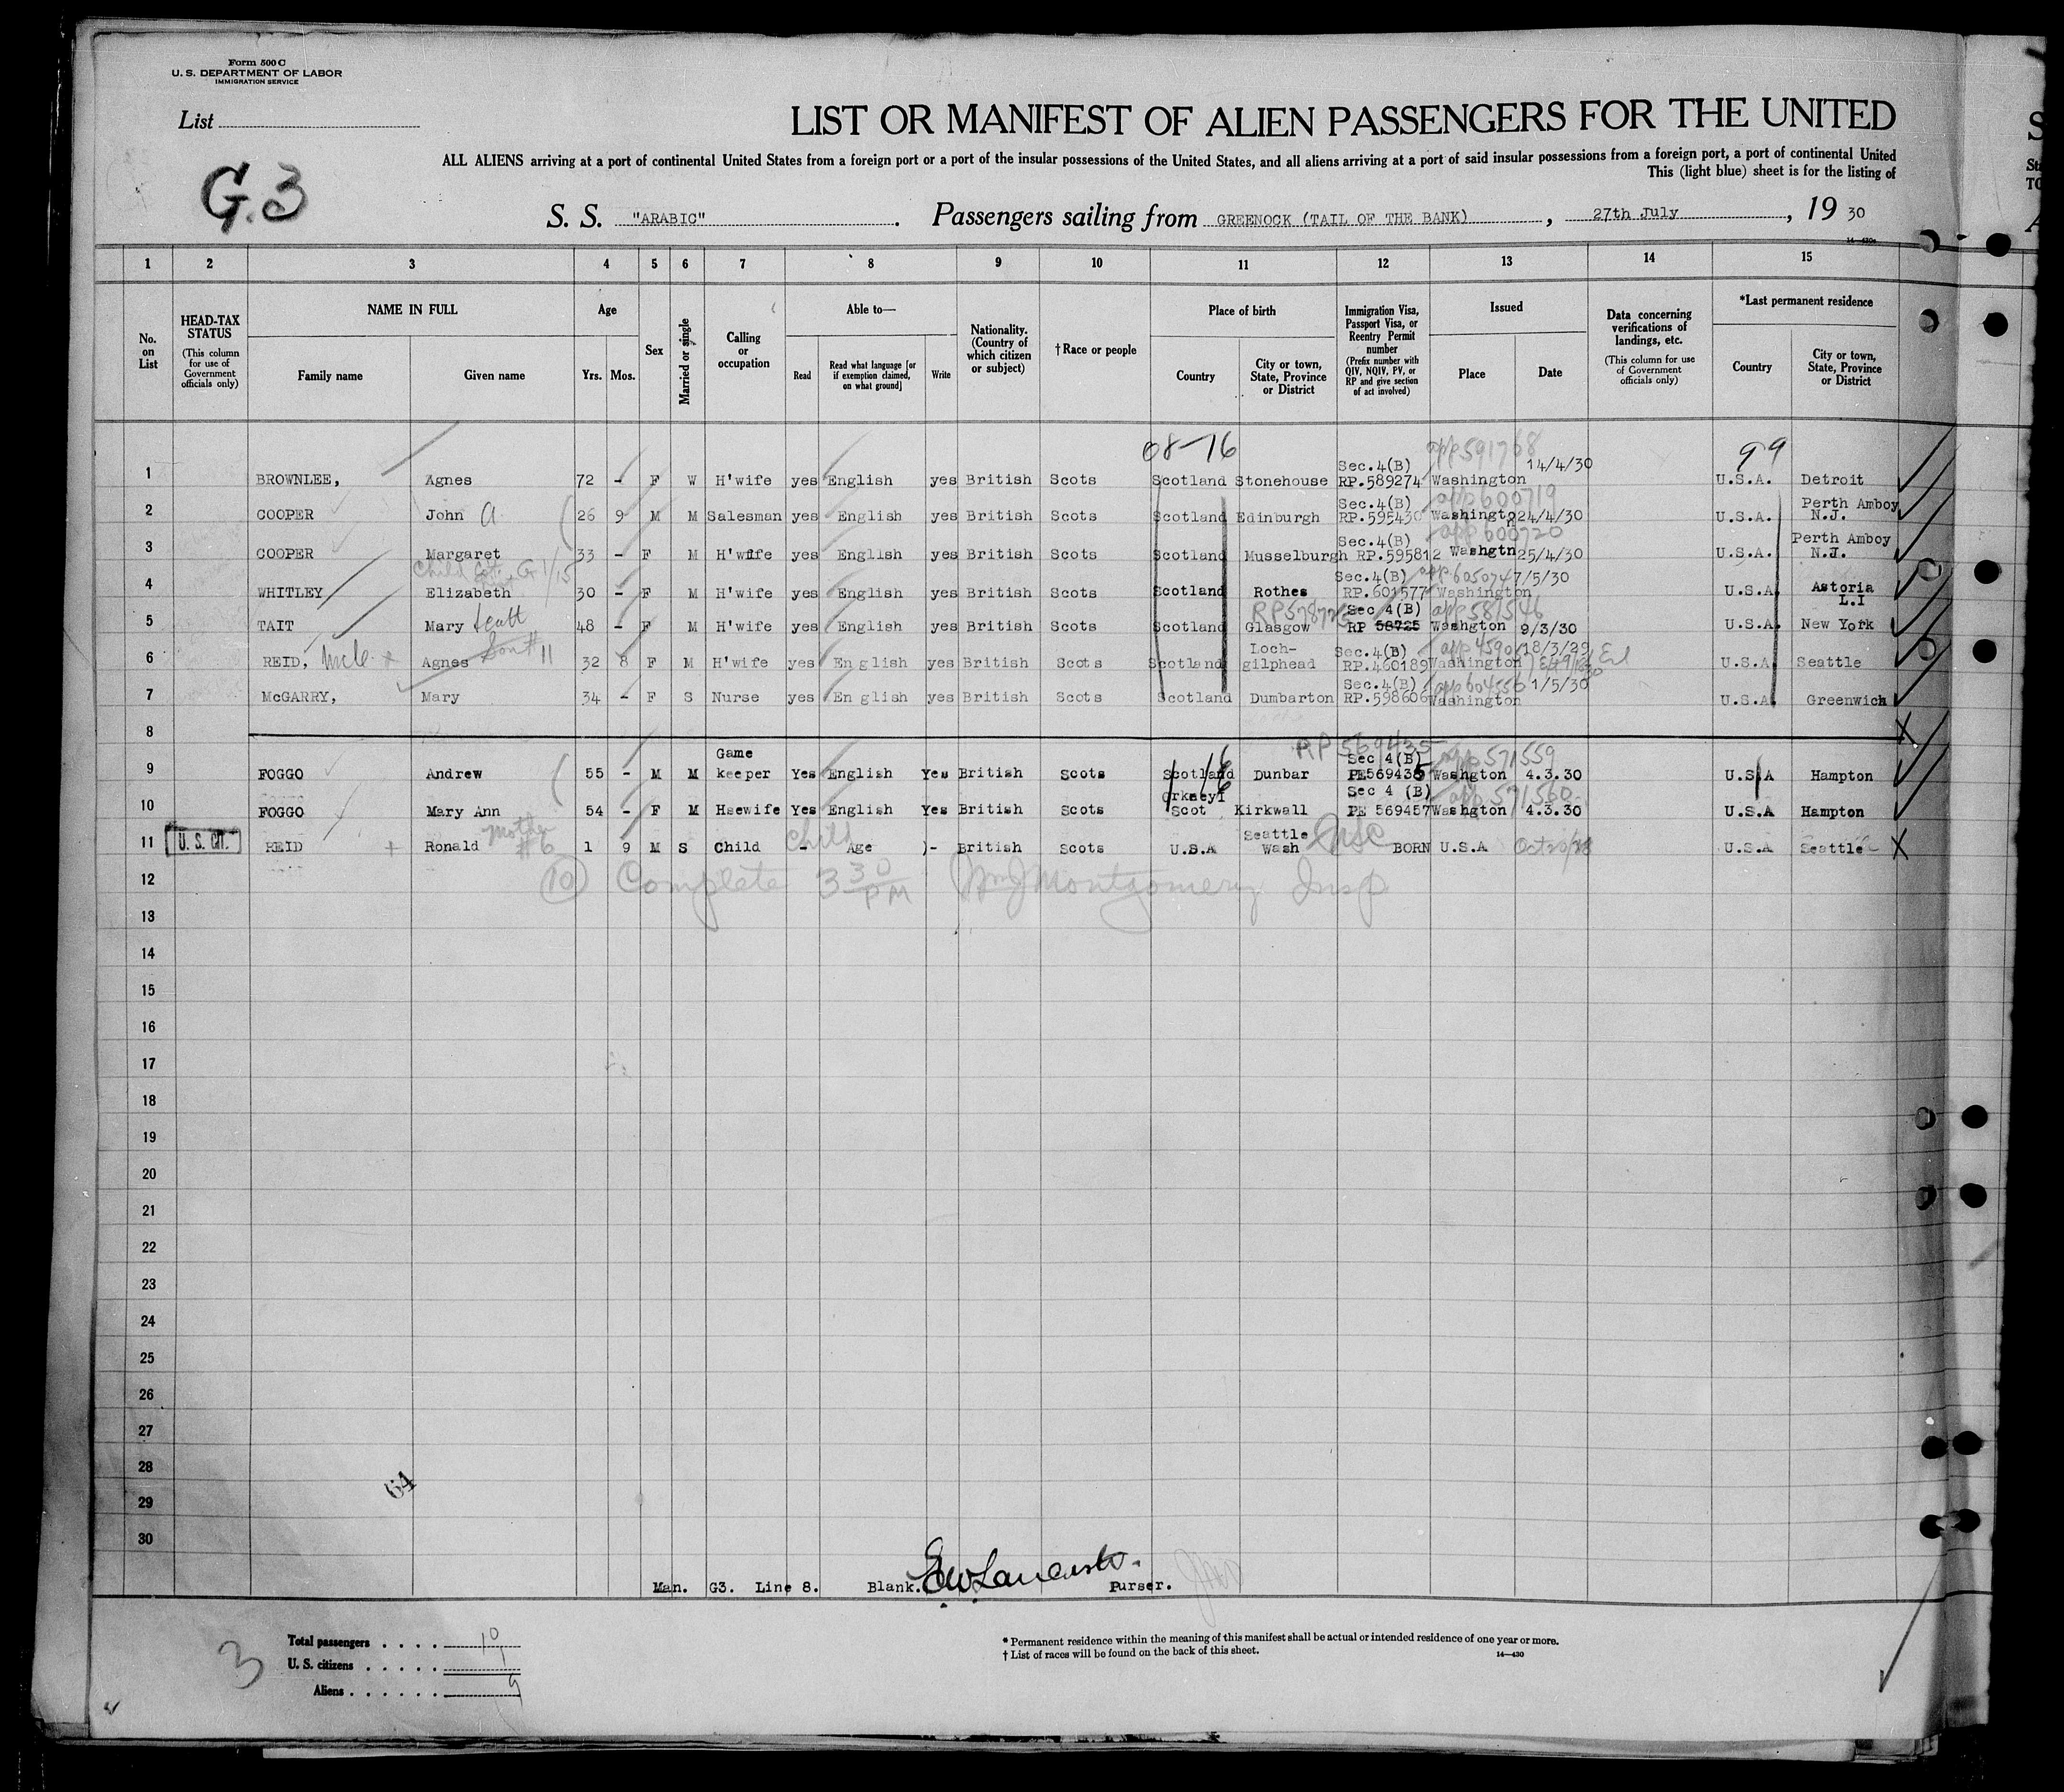 Form 500 C
U. S. DEPARTMENT OF LABOR
IMMIGRATION SERVICE
List
LIST OR MANIFEST OF ALIEN PASSENGERS FOR THE UNITED
ALL ALIENS arriving at a port of continental United States from a foreign port or a port of the insular possessions of the United States, and all aliens arriving at a port of said insular possessions from a foreign port, a port of continental United
This (light blue) sheet is for the listing of
G.3
S. S. "ARABIC". Passengers sailing from GREENOCK (TAIL OF THE BANK), 27th July, 19 30
1 2 3 4 5 6 7 8 9 10 11 12 13 14 15
No. on List
HEAD-TAX STATUS (This column for use of Government officials only)
NAME IN FULL Family name Given name
Age Yrs. Mos.
Sex
Married or single
Calling or occupation
Able to— Read Read what language [or if exemption claimed, on what ground] Write
Nationality. (Country of which citizen or subject)
†Race or people
Place of birth Country City or town, State, Province or District
Immigration Visa, Passport Visa, or Reentry Permit number (Prefix number with QIV, NQIV, PV, or RP and give section of act involved)
Issued Place Date
Data concerning verifications of landings, etc. (This column for use of Government officials only)
*Last permanent residence Country City or town, State, Province or District
08-16 app 591768 99
1 BROWNLEE, Agnes 72 - F W H'wife yes English yes British Scots Scotland Stonehouse Sec.4(B) RP.589274 Washington 14/4/30 U.S.A. Detroit
app 600719
2 COOPER John A 26 9 M M Salesman yes English yes British Scots Scotland Edinburgh Sec.4(B) RP.595430 Washington 24/4/30 U.S.A. Perth Amboy N.J.
app 600720
3 COOPER Margaret 33 - F M H'wife yes English yes British Scots Scotland Musselburgh Sec.4(B) RP.595812 Washgtn 25/4/30 U.S.A. Perth Amboy N.J.
Child G 1/15 app 605074
4 WHITLEY Elizabeth 30 - F M H'wife yes English yes British Scots Scotland Rothes Sec.4(B) RP.601577 Washington 7/5/30 U.S.A. Astoria L.I
app 581546
5 TAIT Mary Scott 48 - F M H'wife yes English yes British Scots Scotland Glasgow Sec 4(B) RP 58725 Washgton 9/3/30 U.S.A. New York
Son # 11
6 REID, Agnes 32 8 F M H'wife yes English yes British Scots Scotland Loch-gilphead Sec.4(B) RP.460189 Washington 18/3/29 U.S.A Seattle
app 604556
7 McGARRY, Mary 34 - F S Nurse yes English yes British Scots Scotland Dumbarton Sec.4(B) RP.598606 Washington 1/5/30 U.S.A. Greenwich
8
RP 569435 app 571559
9 FOGGO Andrew 55 - M M Game keeper Yes English Yes British Scots Scotland 16 Dunbar Sec 4(B) PE569435 Washgton 4.3.30 U.S.A Hampton
app 571560
10 FOGGO Mary Ann 54 - F M Hsewife Yes English Yes British Scots Orkney I Scot Kirkwall Sec 4 (B) PE 569457 Washgton 4.3.30 U.S.A Hampton
Mother # 6 Child
11 U. S. CIT. REID Ronald 1 9 M S Child - Age )- British Scots U.S.A Seattle Wash BORN U.S.A Oct 20/28 U.S.A Seattle
12 (10) Complete 3 30 PM Wm J Montgomery Insp
13
14
15
16
17
18
19
20
21
22
23
24
25
26
27
28
29
30
64
Man. G3. Line 8. Blank. Purser.
3
Total passengers 10
U. S. citizens 1
Aliens 9
* Permanent residence within the meaning of this manifest shall be actual or intended residence of one year or more.
† List of races will be found on the back of this sheet. 14—430